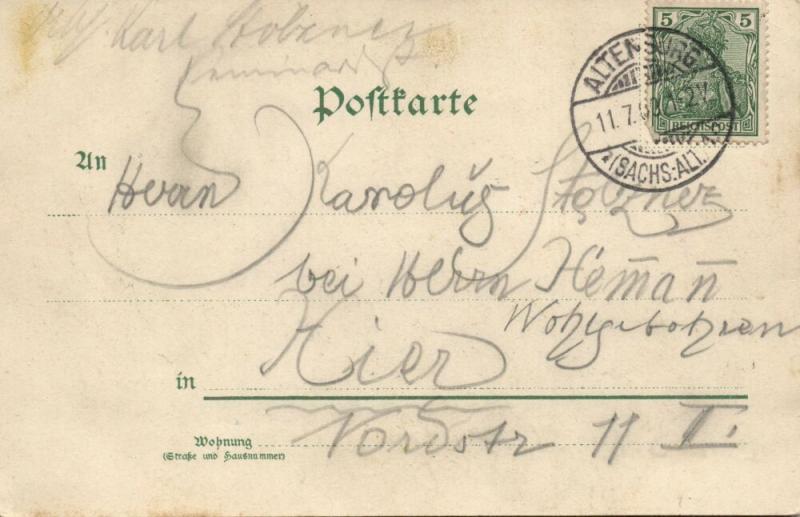 Karl Stölzner
Postkarte
5 5
REICHSPOST
ALTENBURG
11. 7. 1-2 N.
(SACHS:-ALT.)
An Herrn Karolus Stölzner
bei Herrn Hemān̄
Wohlgebohren
in Hier
Wohnung
(Straße und Hausnummer)
Nordstr 11 II.